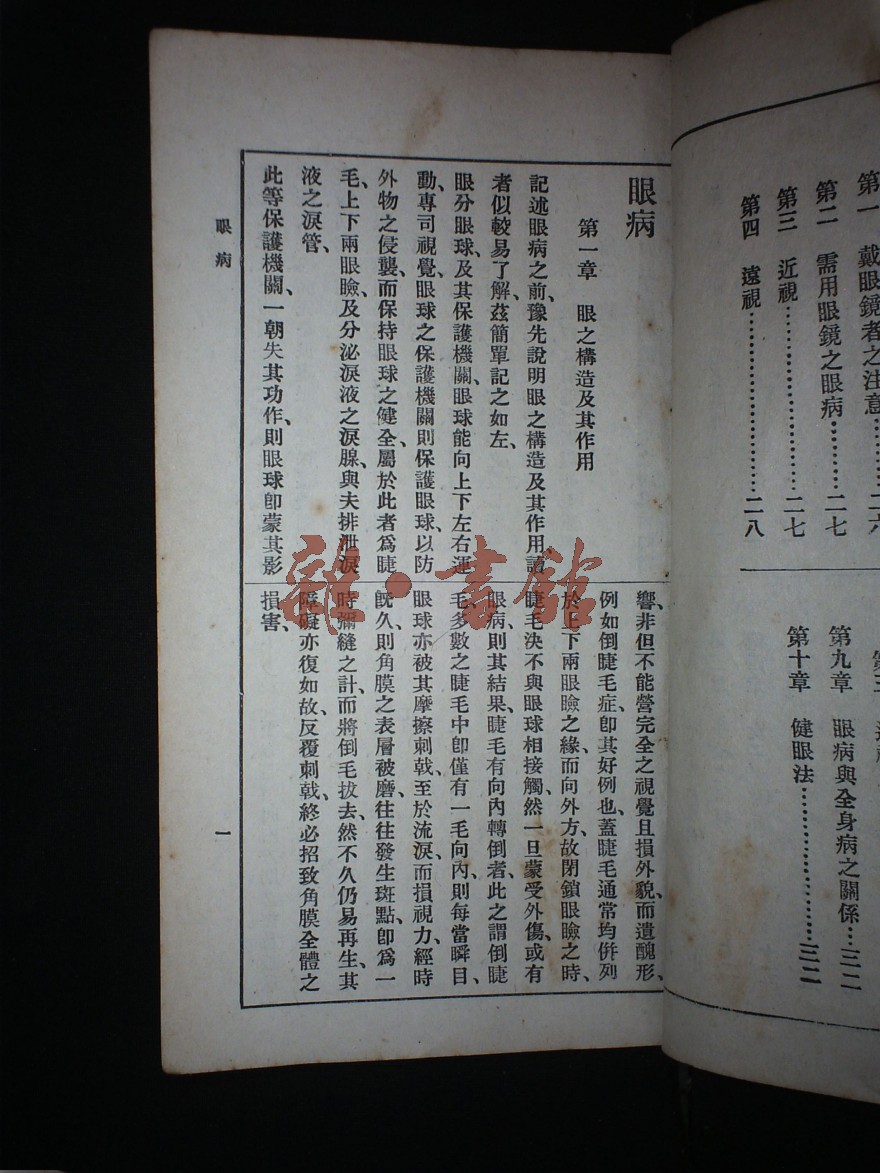 第一 戴眼鏡者之注意…………二六
第二 需用眼鏡之眼病…………二七
第三 近視…………二七
第四 遠視…………二八
第九章 眼病與全身病之關係…三二
第十章 健眼法…………三二
眼病
第一章 眼之構造及其作用
記述眼病之前、豫先說明眼之構造及其作用、讀
者似較易了解、茲簡單記之如左、
眼分眼球及其保護機關、眼球能向上下左右運
動、專司視覺、眼球之保護機關則保護眼球、以防
外物之侵襲、而保持眼球之健全、屬於此者爲睫
毛、上下兩眼瞼、及分泌淚液之淚腺、與夫排泄淚
液之淚管、
此等保護機關、一朝失其功作、則眼球卽蒙其影
響、非但不能營完全之視覺、且損外貌、而遺醜形、
例如倒睫毛症、卽其好例也、蓋睫毛通常均併列
於上下兩眼瞼之緣、而向外方、故閉鎖眼瞼之時、
睫毛決不與眼球相接觸、然一旦蒙受外傷、或有
眼病、則其結果、睫毛有向內轉倒者、此之謂倒睫
毛、多數之睫毛中、卽僅有一毛向內、則每當瞬目、
眼球亦被其摩擦刺戟、至於流淚、而損視力、經時
旣久、則角膜之表層被磨、往往發生斑點、卽爲一
時彌縫之計、而將倒毛拔去、然不久仍易再生、其
障礙亦復如故、反覆刺戟、終必招致角膜全體之
損害、
眼病
一
雜·書館